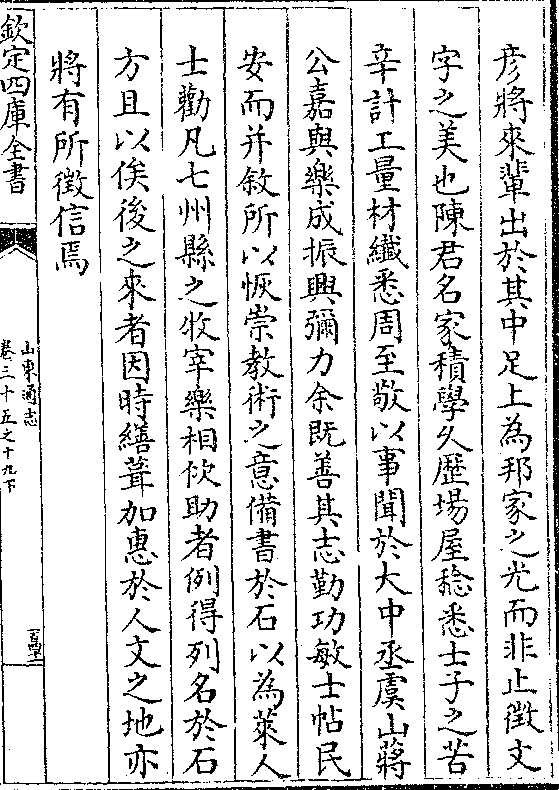 彦將來輩出於其中足上為邦家之光而非止徴文
字之美也陳君名家積學久歴場屋稔悉士子之苦
辛計工量材纎悉周至敬以事聞於大中丞虞山蔣
公嘉與樂成振興彌力余既善其志勤功敏士帖民
安而并敘所以恢崇教術之意備書於石以為萊人
士勸凡七州縣之牧宰樂相佽助者例得列名於石
方且以俟後之來者因時繕葺加惠於人文之地亦
將有所徴信焉
欽定四庫全書
山東通志
卷三十五之十九下